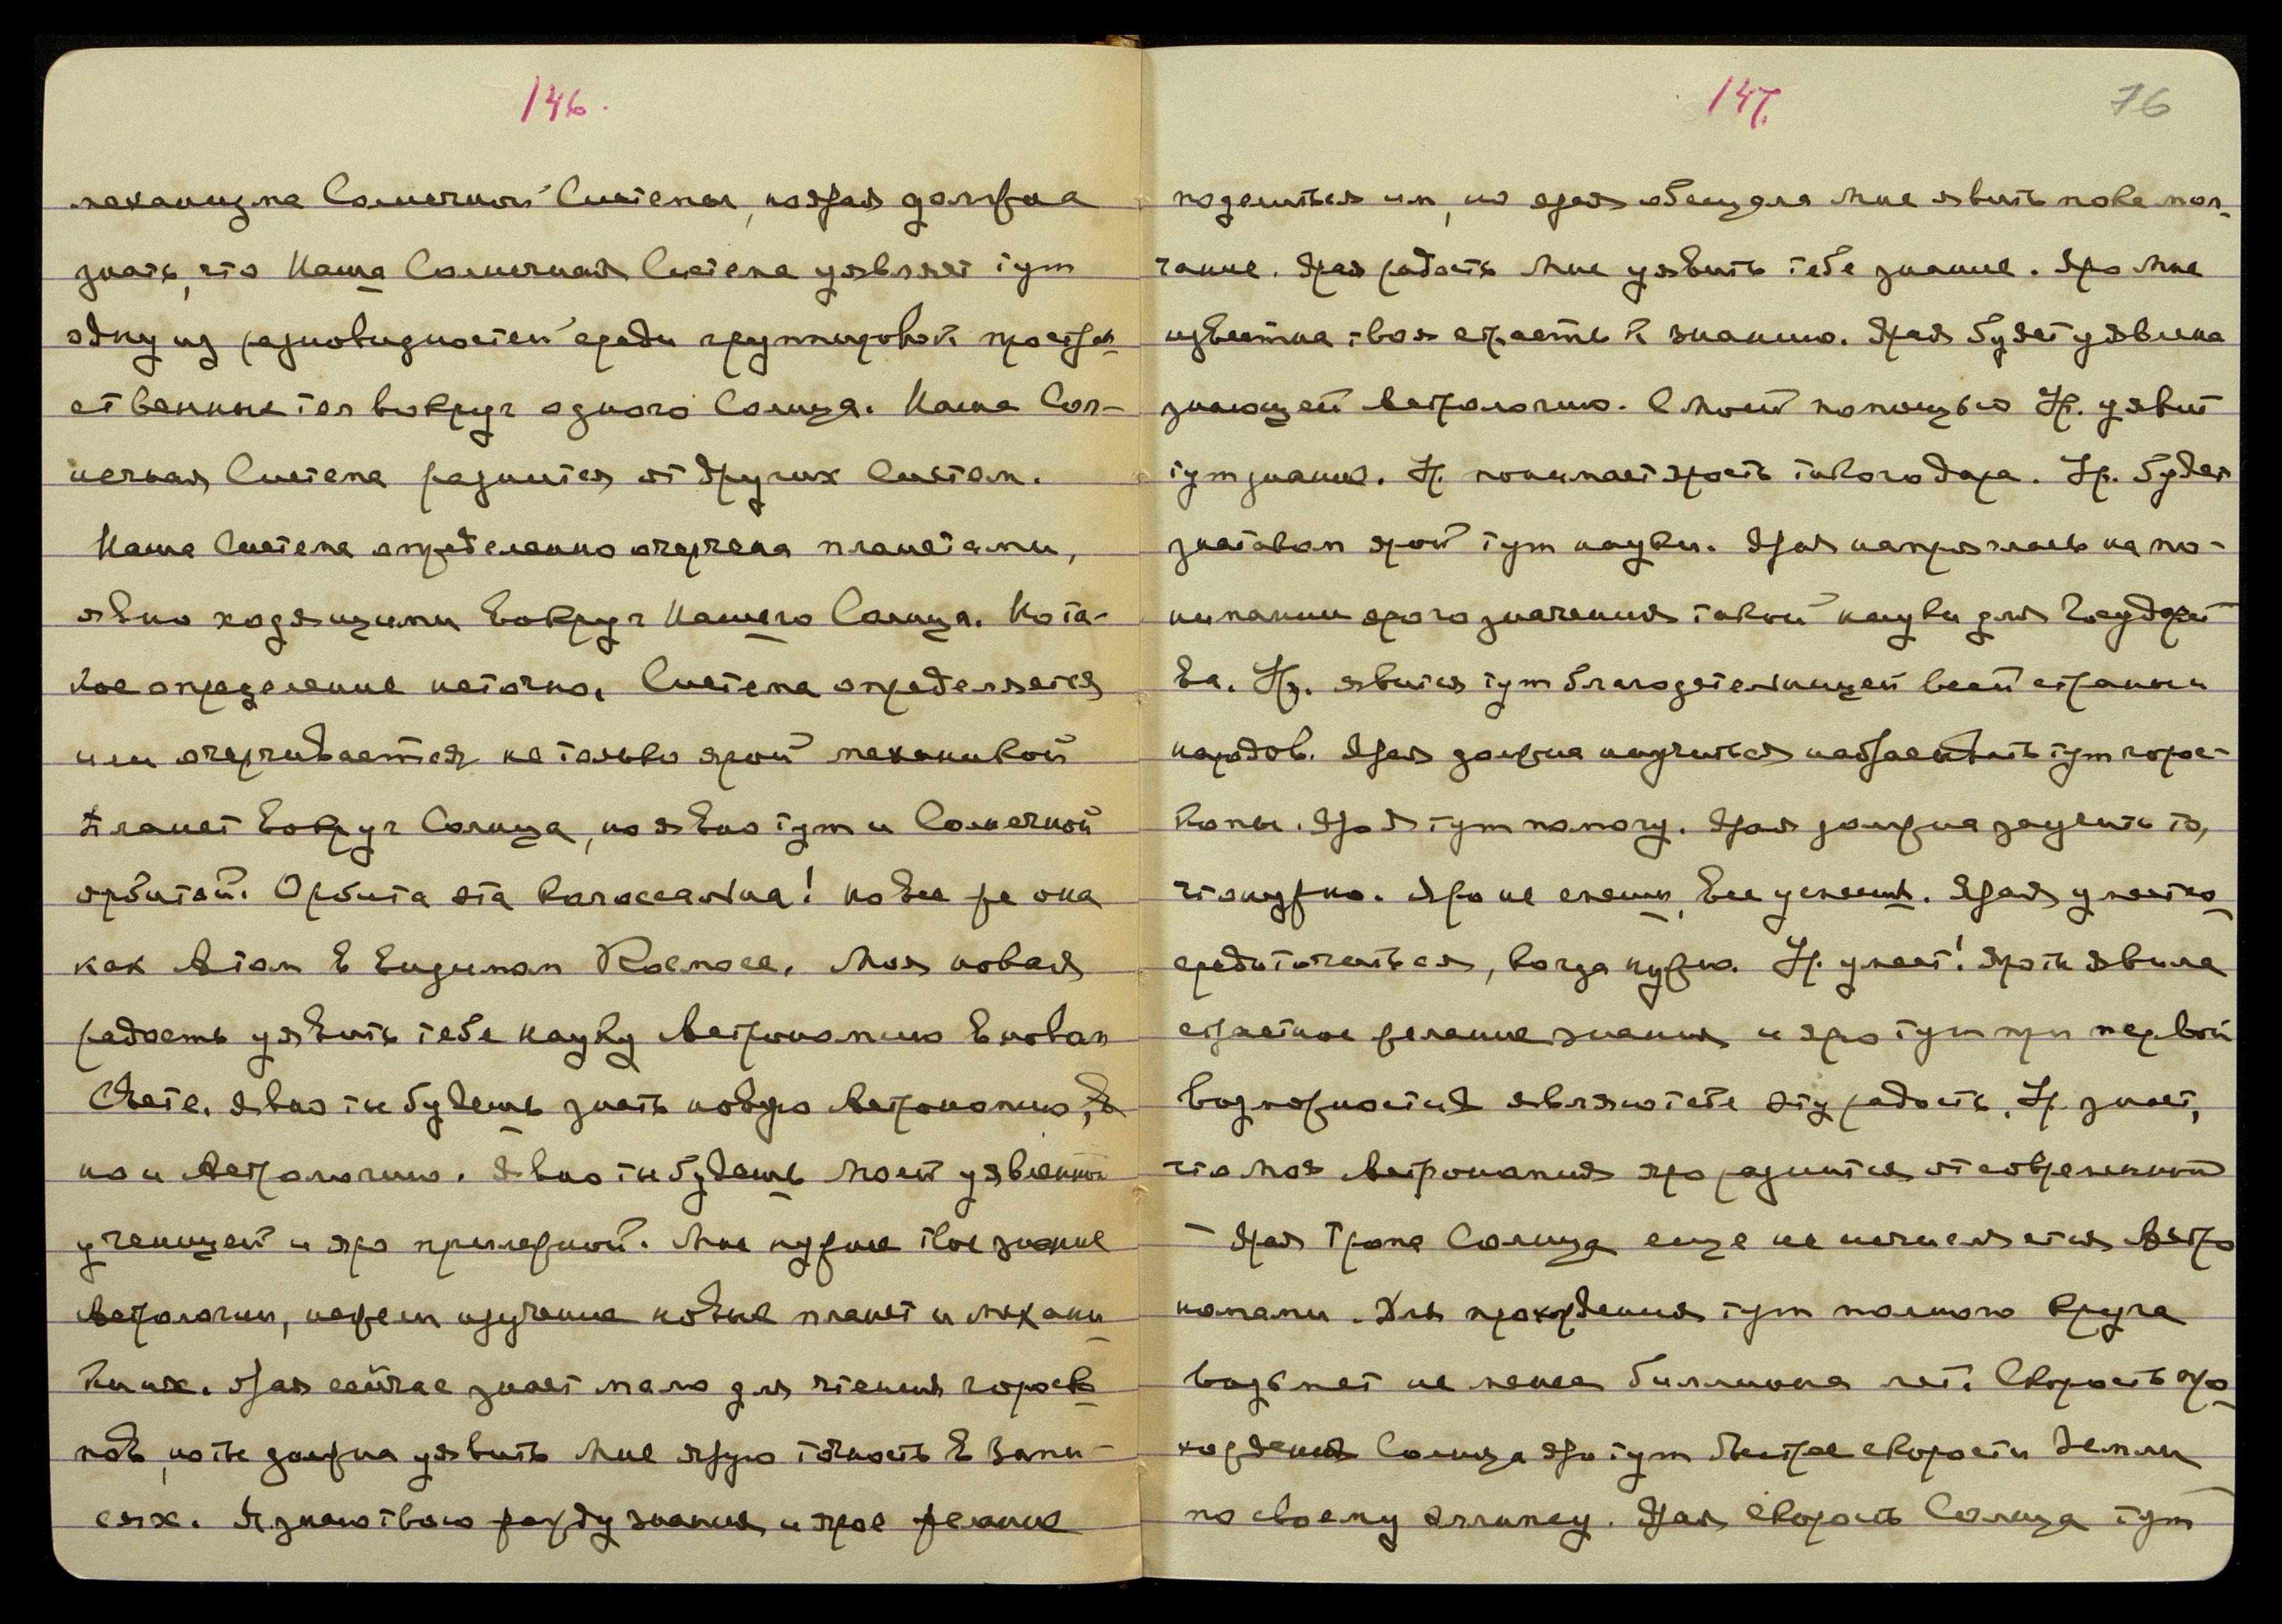 146.
механизма Солнечной Системы, но ярая должна
знать, что Наша Солнечная Система уявляет тут
одну из разновидностей среди группировок простран
ственных тел вокруг одного Солнца. Наша Сол-
нечная Система разнится от других Систем.
Наша Система определенно очерчена планетами,
явно ходящими вокруг Нашего Солнца. Но та-
кое определение неточно. Система определяется
или очерчивается не только ярой механикой
планет вокруг Солнца, но явно тут и Солнечной
орбитой. Орбита эта колоссальна! но все же она
как Атом в Едином Космосе. Моя новая
радость уявить тебе науку Астрономию в новом
Свете. Явно ты будешь знать новую Астрономию,
но и Астрологию. Явно ты будешь Моей уявленной
ученицей и яро прилежной. Мне нужнее твое знание
Астрологии, нежели изучение новые планет и механи
ки их. Ярая сейчас знает мало для чтения гороско
пов, но ты должна уявить Мне ярую точность в Запи-
сях. Я знаю твою жажду знания, и ярое желание
147. 76
поделиться им, но ярая обещала Мне явить пока мол
чание. Ярая радость Мне уявить тебе знание. Яро Мне
известна твоя страсть к знанию. Ярая будет уявлена
знающей Астрологию. С Моей помощью Ур. уявит
тут знание. Ур. понимает ярость такого дара. Ур. будет
знатоком ярой тут науки. Ярая напряглась на по-
нимании ярого значения такой науки для Государст
ва. Ур. явится тут благодетельницей всей страны и
народов. Ярая должна научиться набрасывать тут горос-
копы. Яро Я тут помогу. Ярая должна зацепить то,
что нужно. Яро не спеши, все успеешь. Ярая умеет со
средоточиться, когда нужно. Ур. умеет! Ярость явила
страстное желание знания и яро тут при первой
возможности Я являю тебе эту радость. Ур. знает,
что Моя Астрономия яро разнится от современной
– Ярая Тропа Солнца еще не исчисляется Астро
номами. Для прохождения тут полного Круга
возьмет не менее биллиона лет. Скорость про
хождения Солнца яро тут быстрее скорости Земли
по своему эллипсу. Ярая скорость Солнца тут